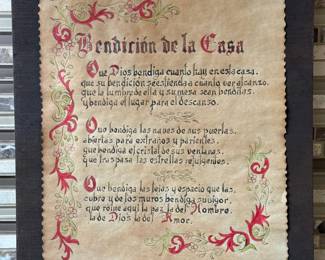 Bendición de la Casa
Que Dios bendiga cuanto hay en esta casa,
que su bendición se extienda cuanto ver alcanzo,
que la lumbre de ella y su mesa sean benditas,
y bendiga el lugar para el descanso.
Que bendiga las naves de sus puertas,
abiertas para extraños y parientes,
que bendiga el cristal de sus ventanas,
que traspasa las estrellas refulgentes.
Que bendiga las tejas y espacio que las
cubre y de los muros bendiga su vigor,
que reine aquí la paz, la del Hombre,
la de Dios, la del Amor.